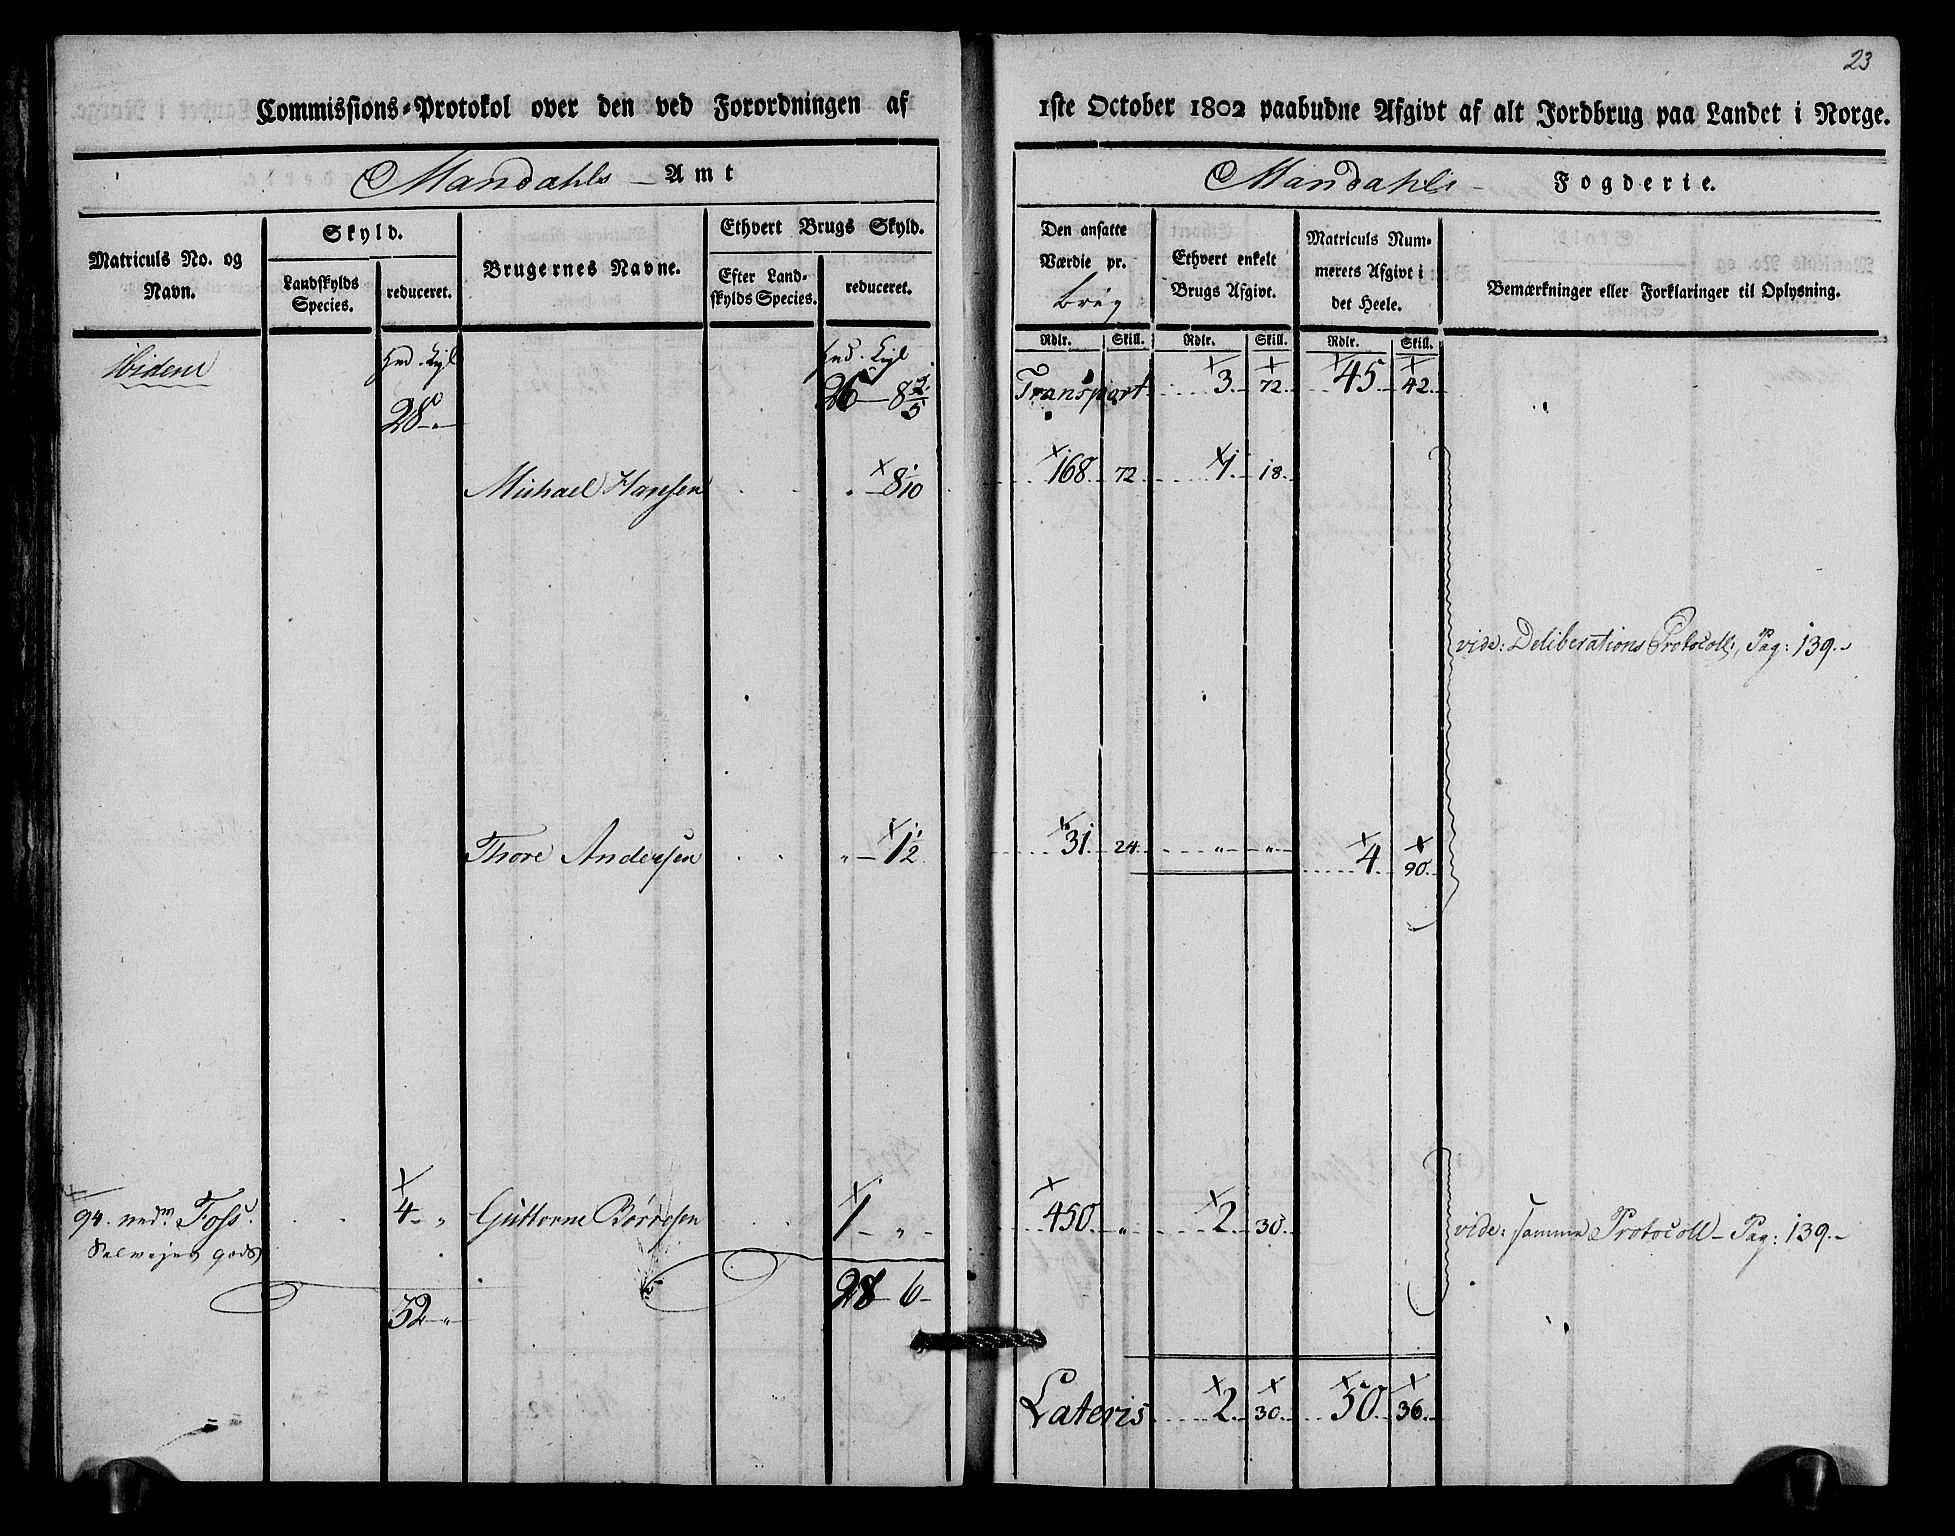 23
Commissions-Protokol over den ved Forordningen af 1ste October 1802 paabudne Afgivt af alt Jordbrug paa Landet i Norge.
Mandahls – Amt
Mandahls – Fogderie.
Matriculs No. og Navn.
Skyld.
Landskylds Species.
reduceret.
Brugernes Navne.
Ethvert Brugs Skyld.
Efter Landskylds Species.
reduceret.
Den ansatte Værdie pr. brug
Ethvert enkelt Brugs Afgivt.
Matriculs Nummerets Afgivt i det Heele.
Bemærkninger eller Forklaringer til Oplysning.
Rdlr. Skill. Rdlr. Skill. Rdlr. Skill.
ibidem
28 - "
26 - 8 2/5
Transport 3. 72. 45. 42.
Michael Hansen " - 8 1/10 168. 72. 1. 18.
vide: Deliberations Protocoll, Pag: 139.
Thore Andersen " - 1 1/2 31. 24. " " 4. 90.
94. nedre Foss. 4 - " Guttorm Børresen 1 - " - 450. " 2. 30.
vide: samme Protocoll - Pag: 139.
gods
32 - "
28 - 6 -
Lateris 2. 30. 50. 36.